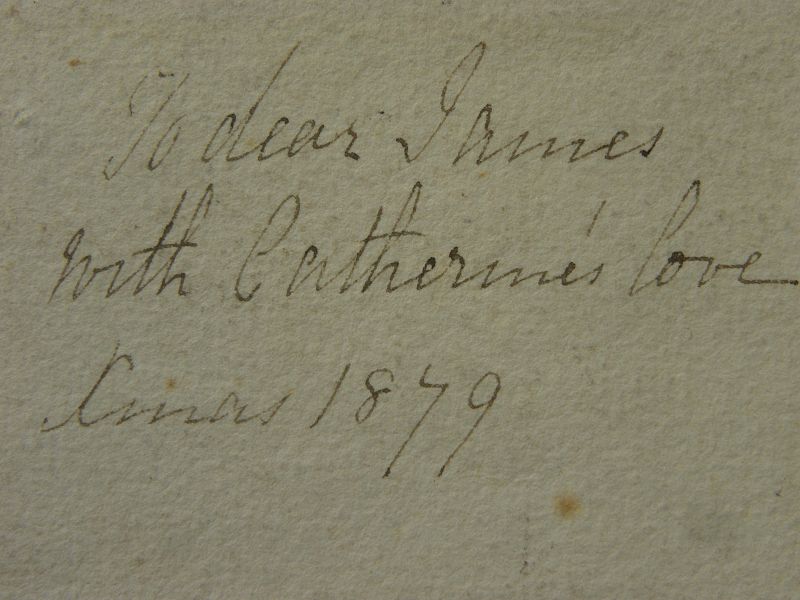 To dear James
with Catherine's love
Xmas 1879